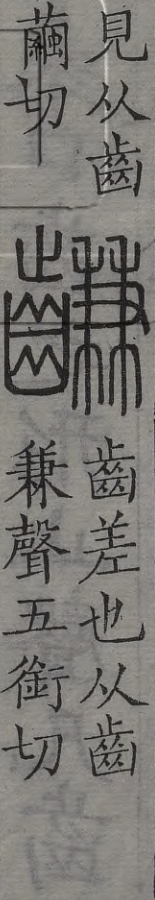 見从齒
繭切
𪙊
齒差也从齒
兼聲五銜切